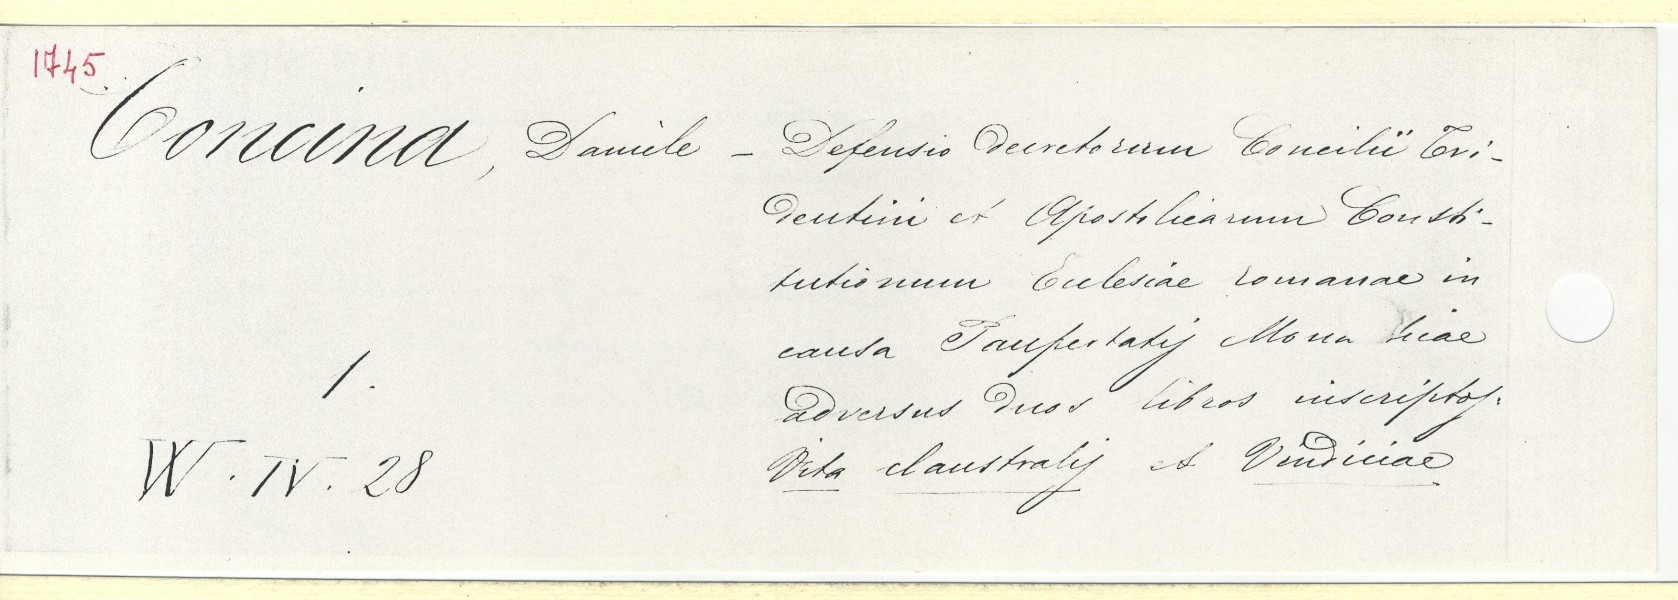 1745
Concina, Daniele – Defensio decretorum Concilii Tri-
dentini et Apostolicarum Consti-
tutionum Ecclesiae romanae in
causa Paupertatis Monasticae
1.
adversus duos libros inscriptos:
W. IV. 28
Vita claustralis et Vindiciae